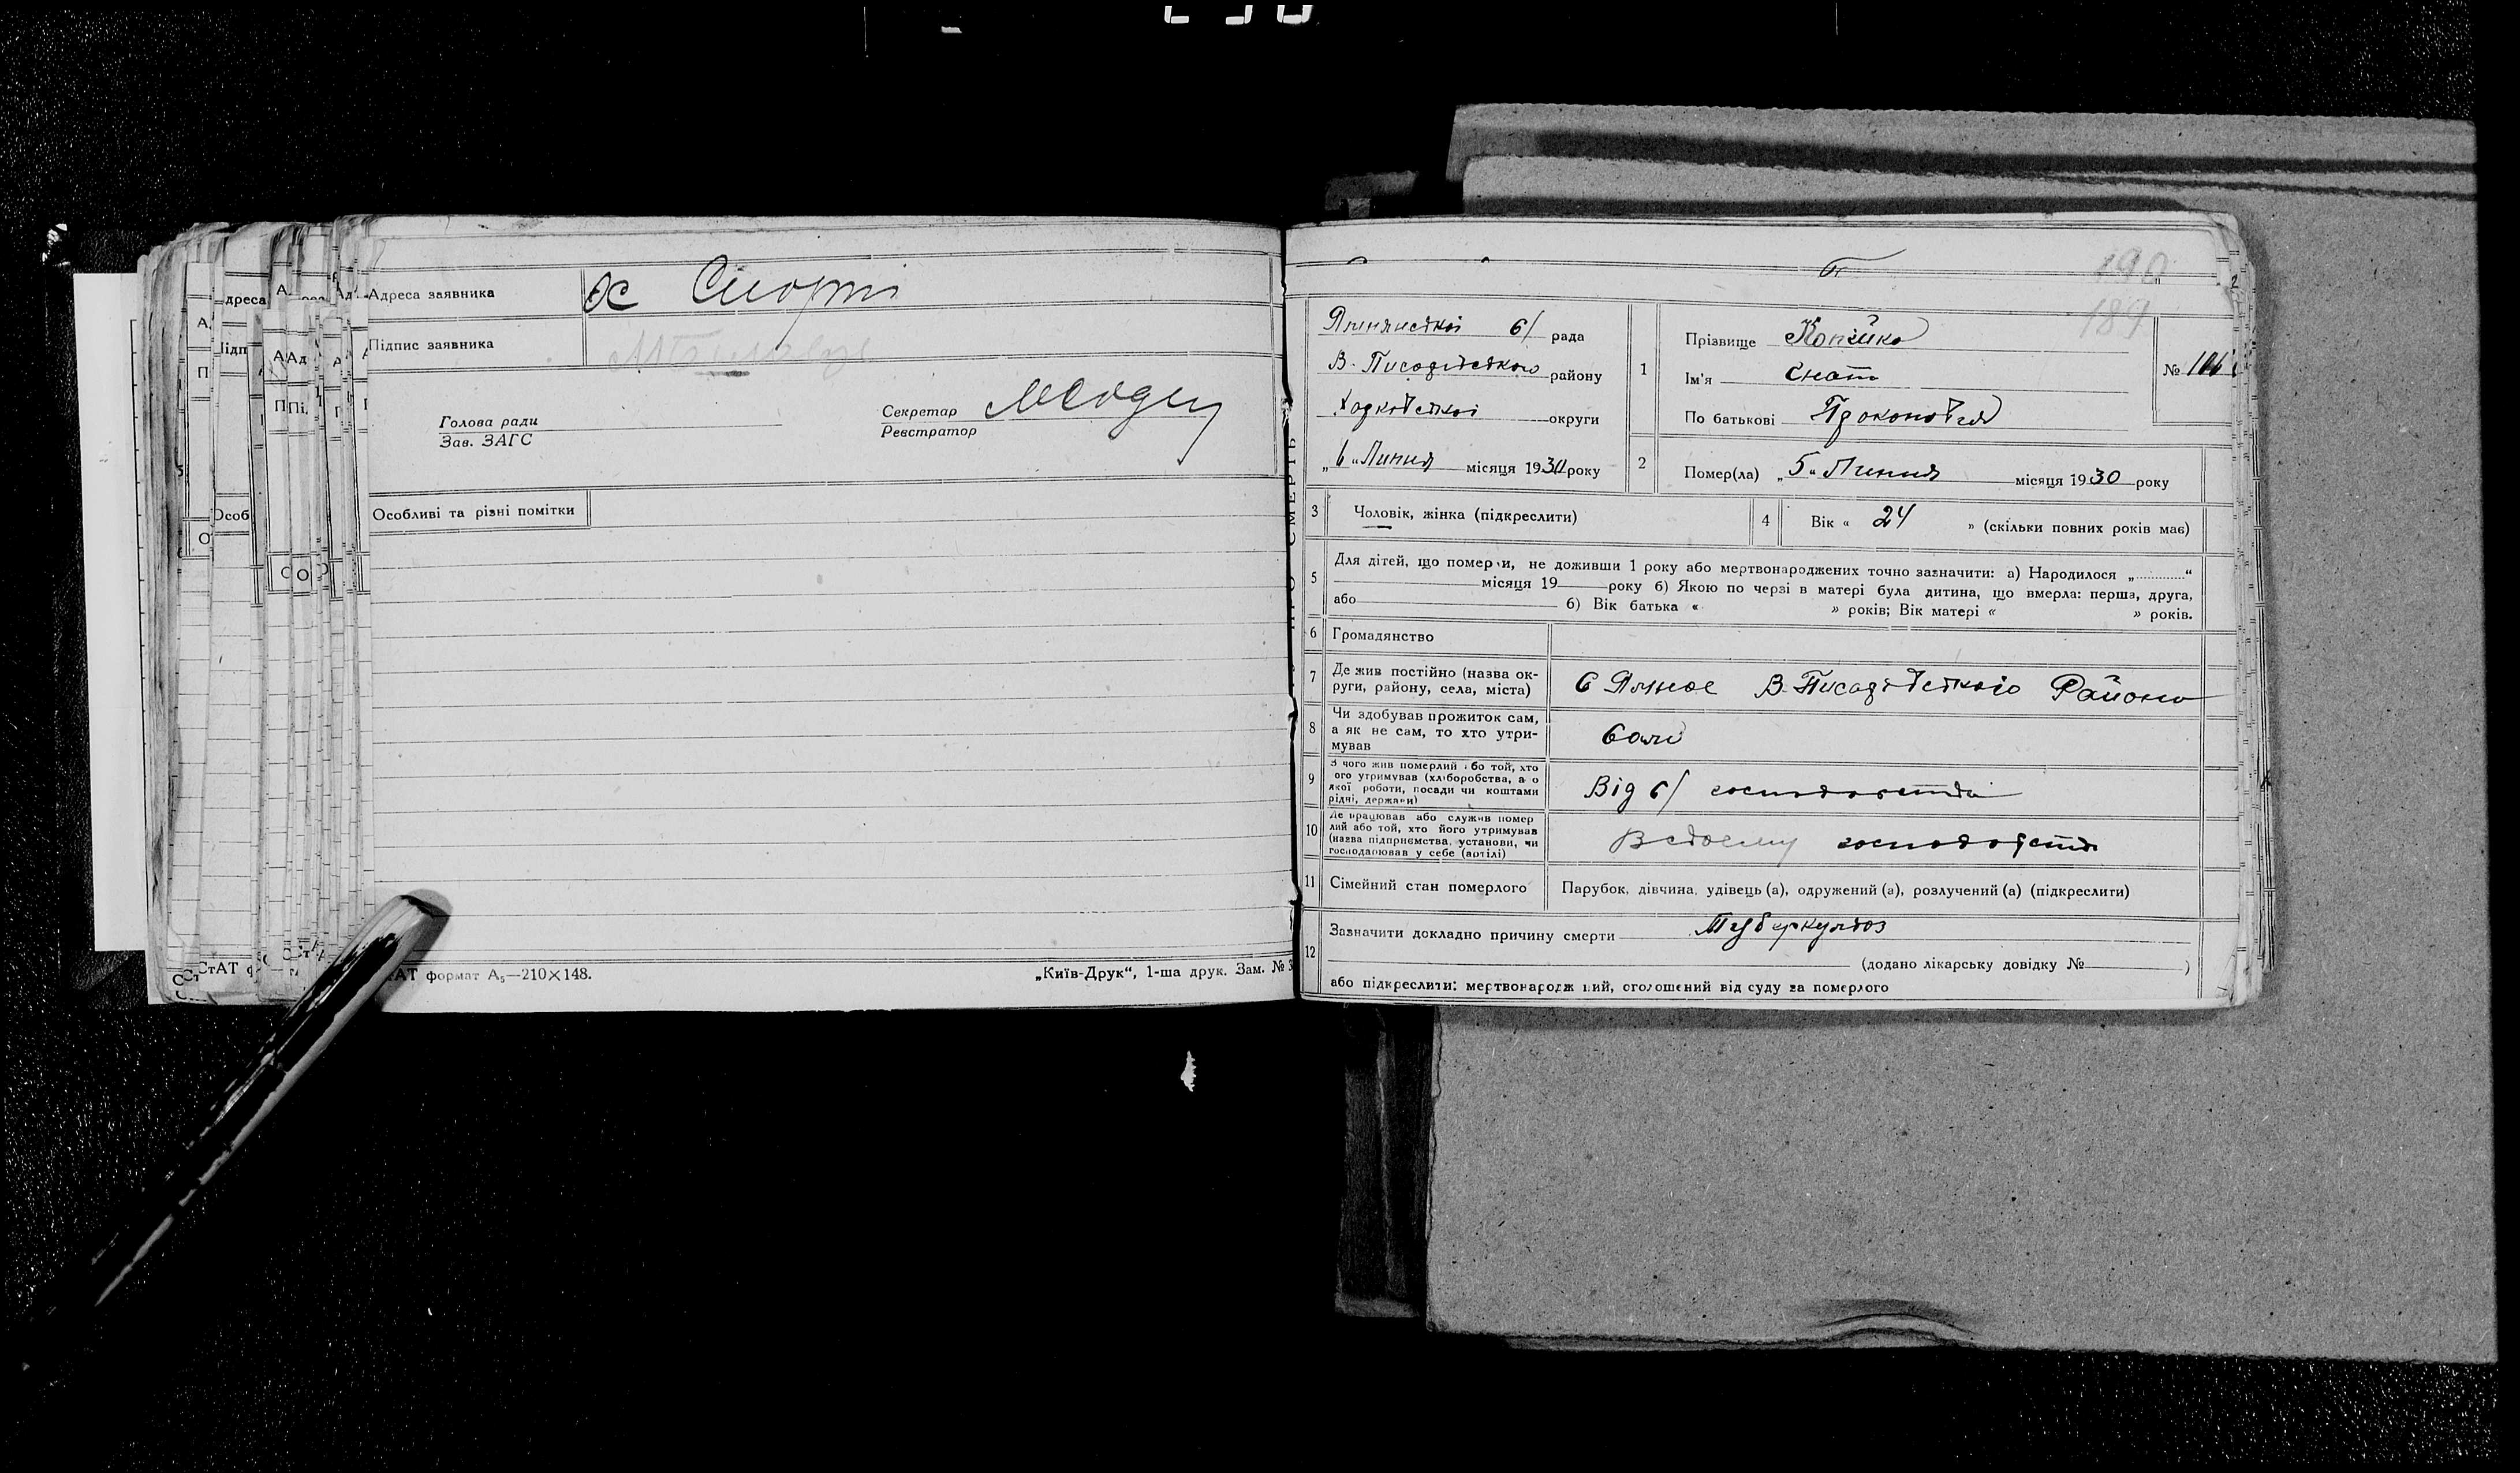 Адреса заявника
Підпис заявника
Голова ради
Зав. ЗАГС
Секретар
Реєстратор
Особливі та різні помітки
формат А₅—210×148.
„Київ-Друк“, 1-ша друк. Зам. №
190
189
рада
В. Писарівського району
Харківської округи
„6„ Липня місяця 1930 року
1
Прізвище Копійко
Ім'я Гнат
По батькові Прокопович
№ 106
2
Помер(ла) „5„ Липня місяця 1930 року
3
Чоловік, жінка (підкреслити)
4
Вік « 24 » (скільки повних років має)
5
Для дітей, що померли, не доживши 1 року або мертвонароджених точно зазначити: а) Народилося „............“
місяця 19 року б) Якою по черзі в матері була дитина, що вмерла: перша, друга,
або б) Вік батька « » років; Вік матері « » років.
6
Громадянство
7
Де жив постійно (назва ок-
руги, району, села, міста)
В. Писарівського Району
8
Чи здобував прожиток сам,
а як не сам, то хто утри-
мував
Сам
9
З чого жив померлий або той, хто
ого утримував (хліборобства, а о
якої роботи, посади чи коштами
рідні, держави)
Від с/ господарства
10
Де працював або служив помер
лий або той, хто його утримував
(назва підприємства, установи, чи
господарював у себе (артілі)
В своєму господарстві
11
Сімейний стан померлого
Парубок, дівчина, удівець (а), одружений (а), розлучений (а) (підкреслити)
12
Зазначити докладно причину смерти Туберкульоз
(додано лікарську довідку № )
або підкреслити: мертвонародж ний, оголошений від суду за померлого